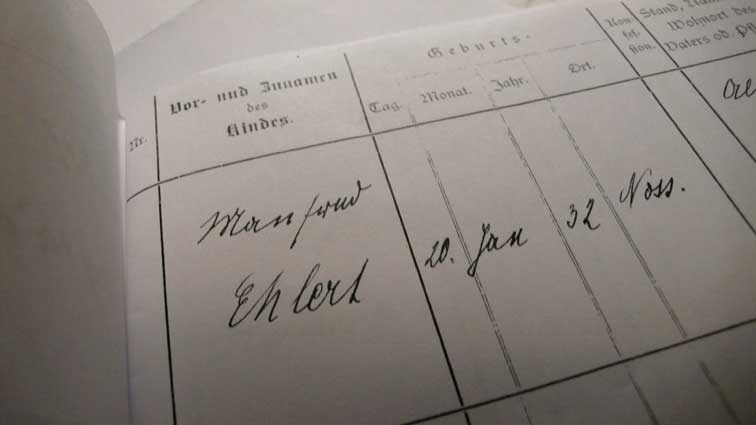 Nr.
Vor- und Zunamen
des
Kindes.
Geburts-
Tag. Monat. Jahr. Ort.
Kon
fes
sion.
Stand,
Wohnort des
Vaters od.
Manfred
Ehlert
20. Jan 32 Noss.